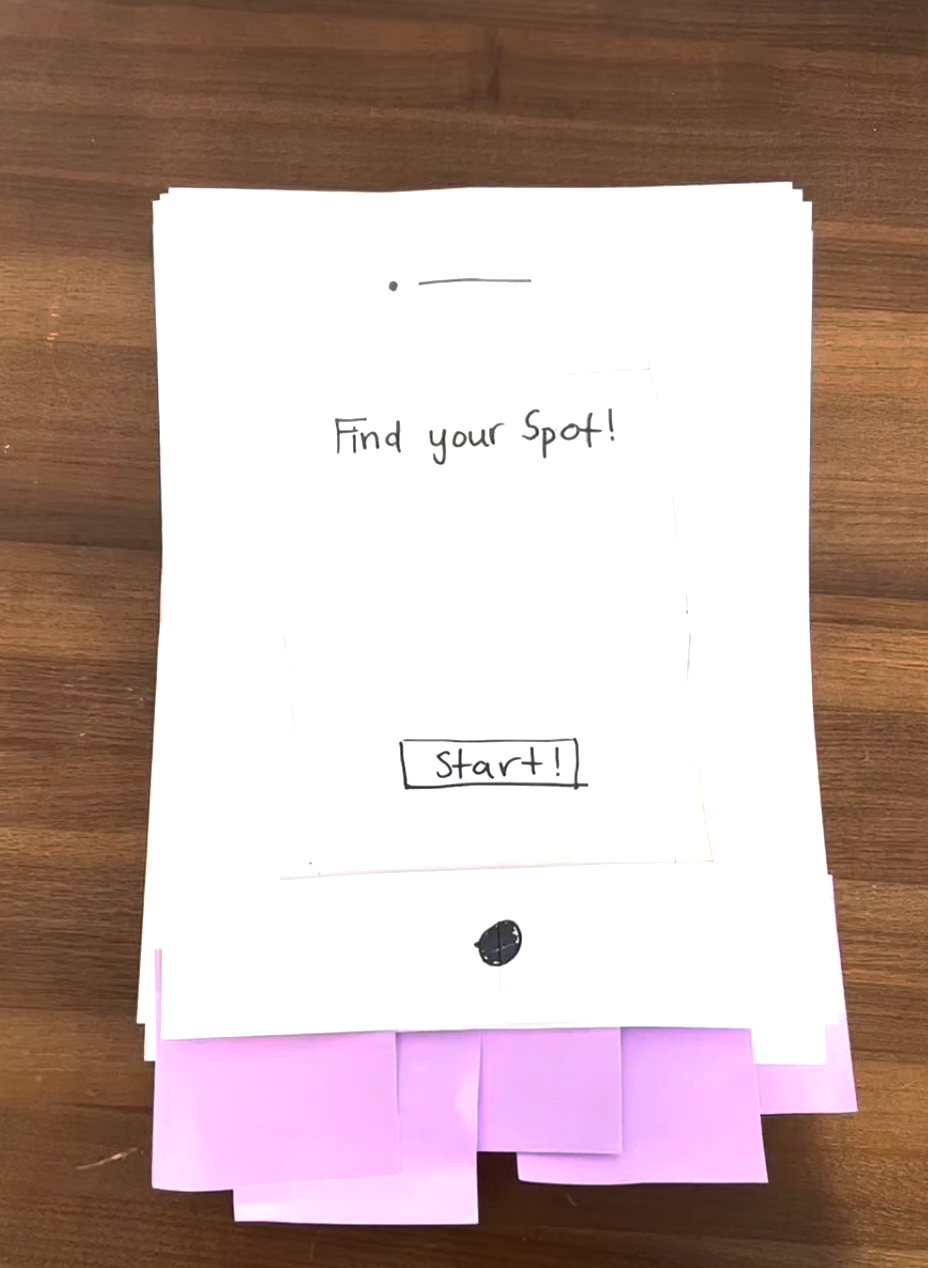 Find your Spot!
Start!